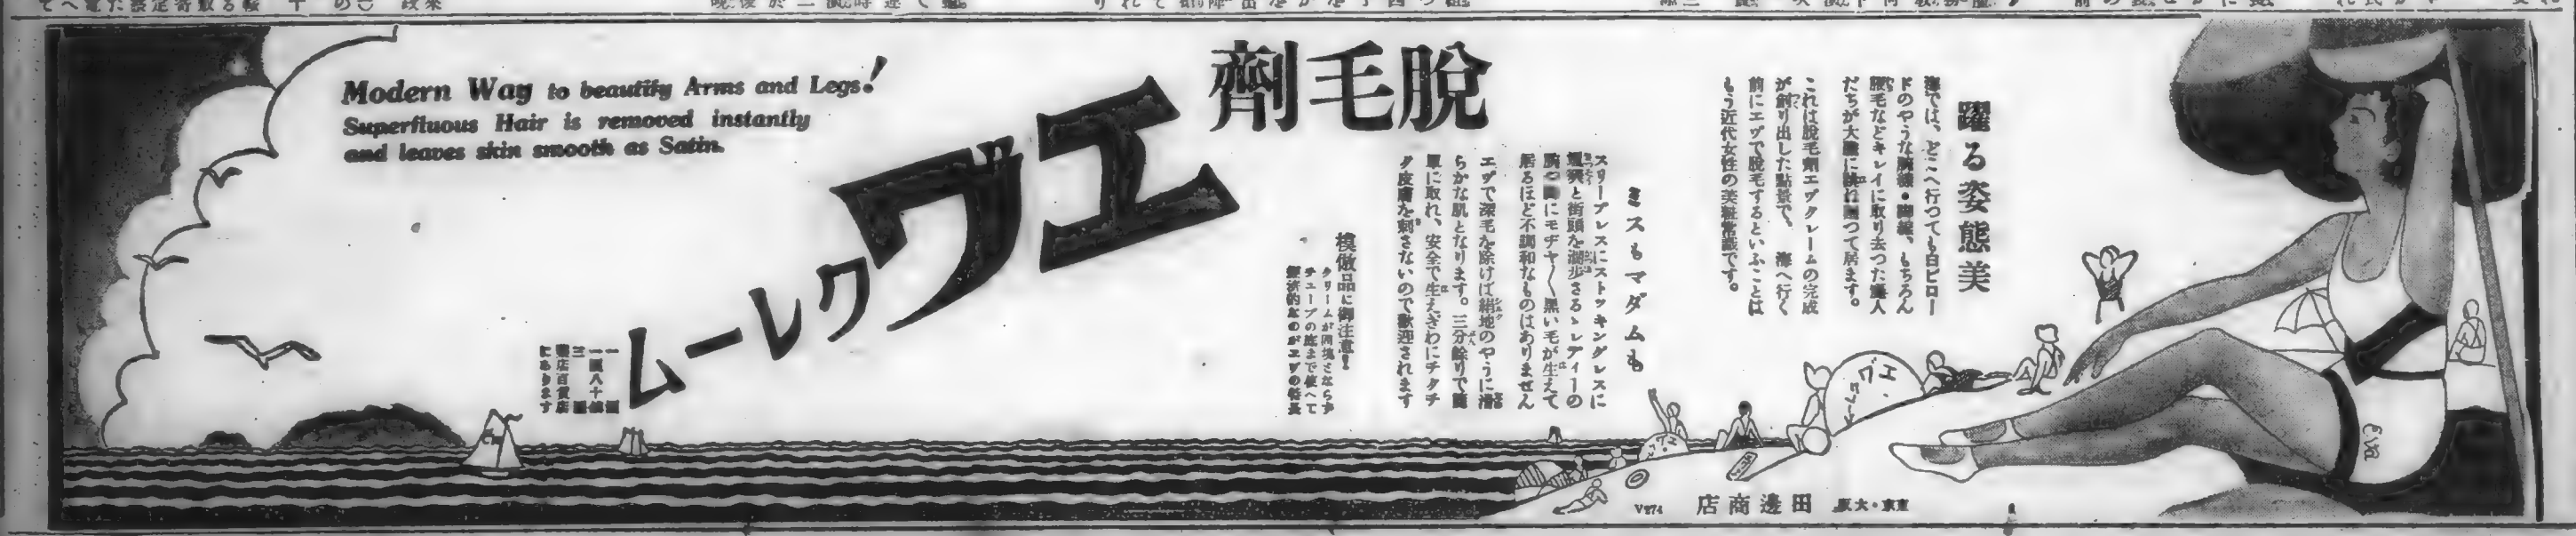 脱毛劑
エヴクレーム
Modern Way to beautify Arms and Legs!
Superfluous Hair is removed instantly
and leaves skin smooth as Satin.
躍る姿態美
海では、どこへ行つても白ビロー
ドのやうな腕線・脚線、もちろん
腋毛などキレイに取り去つた麗人
たちが大膽に つて居ます。
これは脱毛劑エヴクレームの完成
が創り出した點景で、 海へ行く
前にエヴで脱毛するといふことは
もう近代女性の美粧常識です。
ミスもマダムも
スリーブレスにストツキングレスに
と街頭を濶歩さるゝレディーの
腕や脚にモヂャ〳〵黒い毛が生えて
居るほど不調和なものはありません
エヴで深毛を除けば絹地のやうに滑
らかな肌となります。三分餘りで簡
單に取れ、安全で生えぎわにチクチ
ク皮膚を刺さないので歡迎されます
模倣品に御注意!
クリームが固塊とならず
チューブの底まで使へて
經濟的なのがエヴの特長
一圓八十錢
藥店百貨店
にあります
エヴ
エヴ
クレーム
Eva
東京・大阪 田邊商店
V274